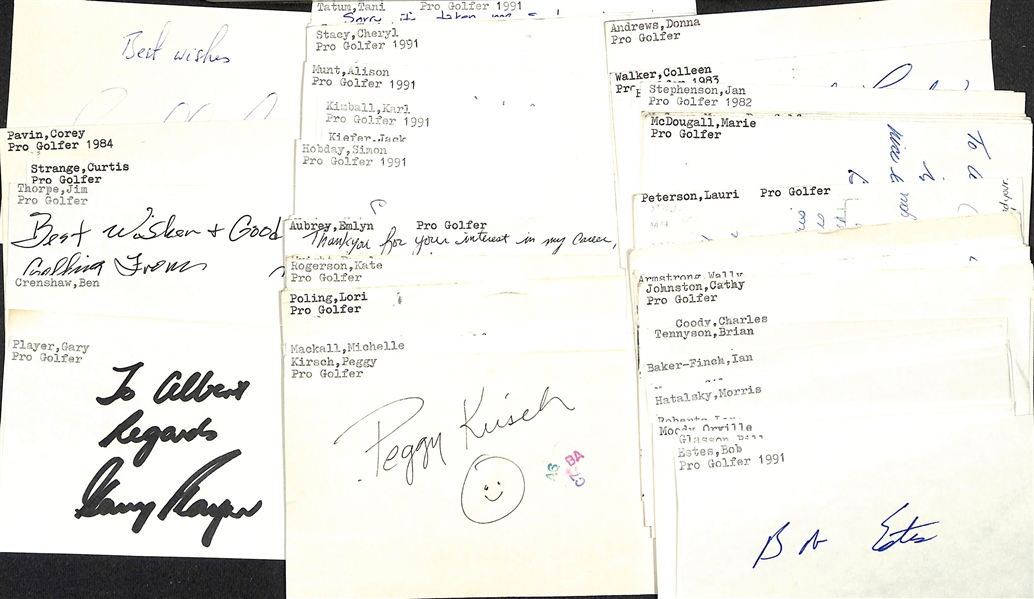 Best wishes
Pavin,Corey
Pro Golfer 1984
Strange,Curtis
Pro Golfer
Thorpe,Jim
Pro Golfer
Best Wishes + Good
Golfing From
Crenshaw,Ben
Player,Gary
Pro Golfer
To Albert
Regards
Gary Player
Tatum,Tani Pro Golfer 1991
Sorry it taken me
Stacy,Cheryl
Pro Golfer 1991
Munt,Alison
Pro Golfer 1991
Kimball,Karl
Pro Golfer 1991
Kiefer,Jack
Hobday,Simon
Pro Golfer 1991
Aubrey,Emlyn Pro Golfer
Thankyou for your interest in my career,
Rogerson,Kate
Pro Golfer
Poling,Lori
Pro Golfer
Mackall,Michelle
Kirsch,Peggy
Pro Golfer
Peggy Kirsch
AS
BA
Andrews,Donna
Pro Golfer
Walker,Colleen
1983
Stephenson,Jan
Pro Golfer 1982
McDougall,Marie
Pro Golfer
To a
Nice &
Peterson,Lauri Pro Golfer
Armstrong,Wally
Johnston,Cathy
Pro Golfer
Coody,Charles
Tennyson,Brian
Baker-Finch,Ian
Hatalsky,Morris
Moody,Orville
Glasson,Bill
Estes,Bob
Pro Golfer 1991
Bob Estes